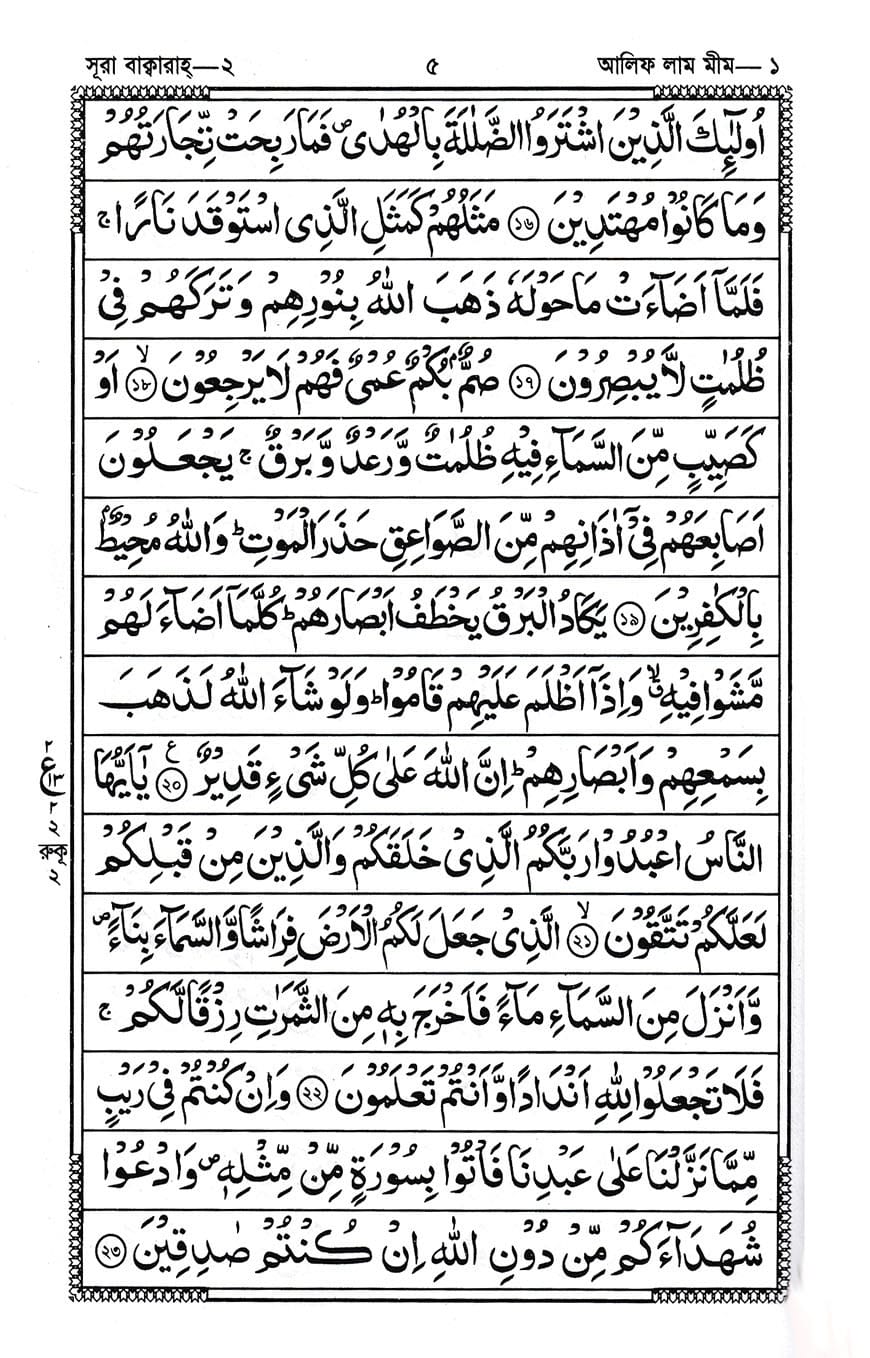 সূরা বাক্বারাহ্—২ ৫ আলিফ লাম মীম—১
اُولٰٓئِكَ الَّذِيْنَ اشْتَرَوُا الضَّلٰلَةَ بِالْهُدٰى ۪ فَمَا رَبِحَتْ تِّجَارَتُهُمْ
وَمَا كَانُوْا مُهْتَدِيْنَ ১৬ مَثَلُهُمْ كَمَثَلِ الَّذِى اسْتَوْقَدَ نَارًا ۚ
فَلَمَّآ اَضَآءَتْ مَا حَوْلَهٗ ذَهَبَ اللّٰهُ بِنُوْرِهِمْ وَتَرَكَهُمْ فِىْ
ظُلُمٰتٍ لَّا يُبْصِرُوْنَ ১৭ صُمٌّۢ بُكْمٌ عُمْىٌ فَهُمْ لَا يَرْجِعُوْنَ ۙ ১৮ اَوْ
كَصَيِّبٍ مِّنَ السَّمَآءِ فِيْهِ ظُلُمٰتٌ وَّرَعْدٌ وَّبَرْقٌ ۚ يَجْعَلُوْنَ
اَصَابِعَهُمْ فِىْٓ اٰذَانِهِمْ مِّنَ الصَّوَاعِقِ حَذَرَ الْمَوْتِ ؕ وَاللّٰهُ مُحِيْطٌۢ
بِالْكٰفِرِيْنَ ১৯ يَكَادُ الْبَرْقُ يَخْطَفُ اَبْصَارَهُمْ ؕ كُلَّمَآ اَضَآءَ لَهُمْ
مَّشَوْا فِيْهِ ۙۗ وَاِذَآ اَظْلَمَ عَلَيْهِمْ قَامُوْا ؕ وَلَوْ شَآءَ اللّٰهُ لَذَهَبَ
بِسَمْعِهِمْ وَاَبْصَارِهِمْ ؕ اِنَّ اللّٰهَ عَلٰى كُلِّ شَىْءٍ قَدِيْرٌ ২০ ع يٰٓاَيُّهَا
النَّاسُ اعْبُدُوْا رَبَّكُمُ الَّذِىْ خَلَقَكُمْ وَالَّذِيْنَ مِنْ قَبْلِكُمْ
لَعَلَّكُمْ تَتَّقُوْنَ ۙ ২১ الَّذِىْ جَعَلَ لَكُمُ الْاَرْضَ فِرَاشًا وَّالسَّمَآءَ بِنَآءً ۪
وَّاَنْزَلَ مِنَ السَّمَآءِ مَآءً فَاَخْرَجَ بِهٖ مِنَ الثَّمَرٰتِ رِزْقًا لَّكُمْ ۚ
فَلَا تَجْعَلُوْا لِلّٰهِ اَنْدَادًا وَّاَنْتُمْ تَعْلَمُوْنَ ২২ وَاِنْ كُنْتُمْ فِىْ رَيْبٍ
مِّمَّا نَزَّلْنَا عَلٰى عَبْدِنَا فَاْتُوْا بِسُوْرَةٍ مِّنْ مِّثْلِهٖ ۪ وَادْعُوْا
شُهَدَآءَكُمْ مِّنْ دُوْنِ اللّٰهِ اِنْ كُنْتُمْ صٰدِقِيْنَ ২৩
২
ع
২
রুকূ
২